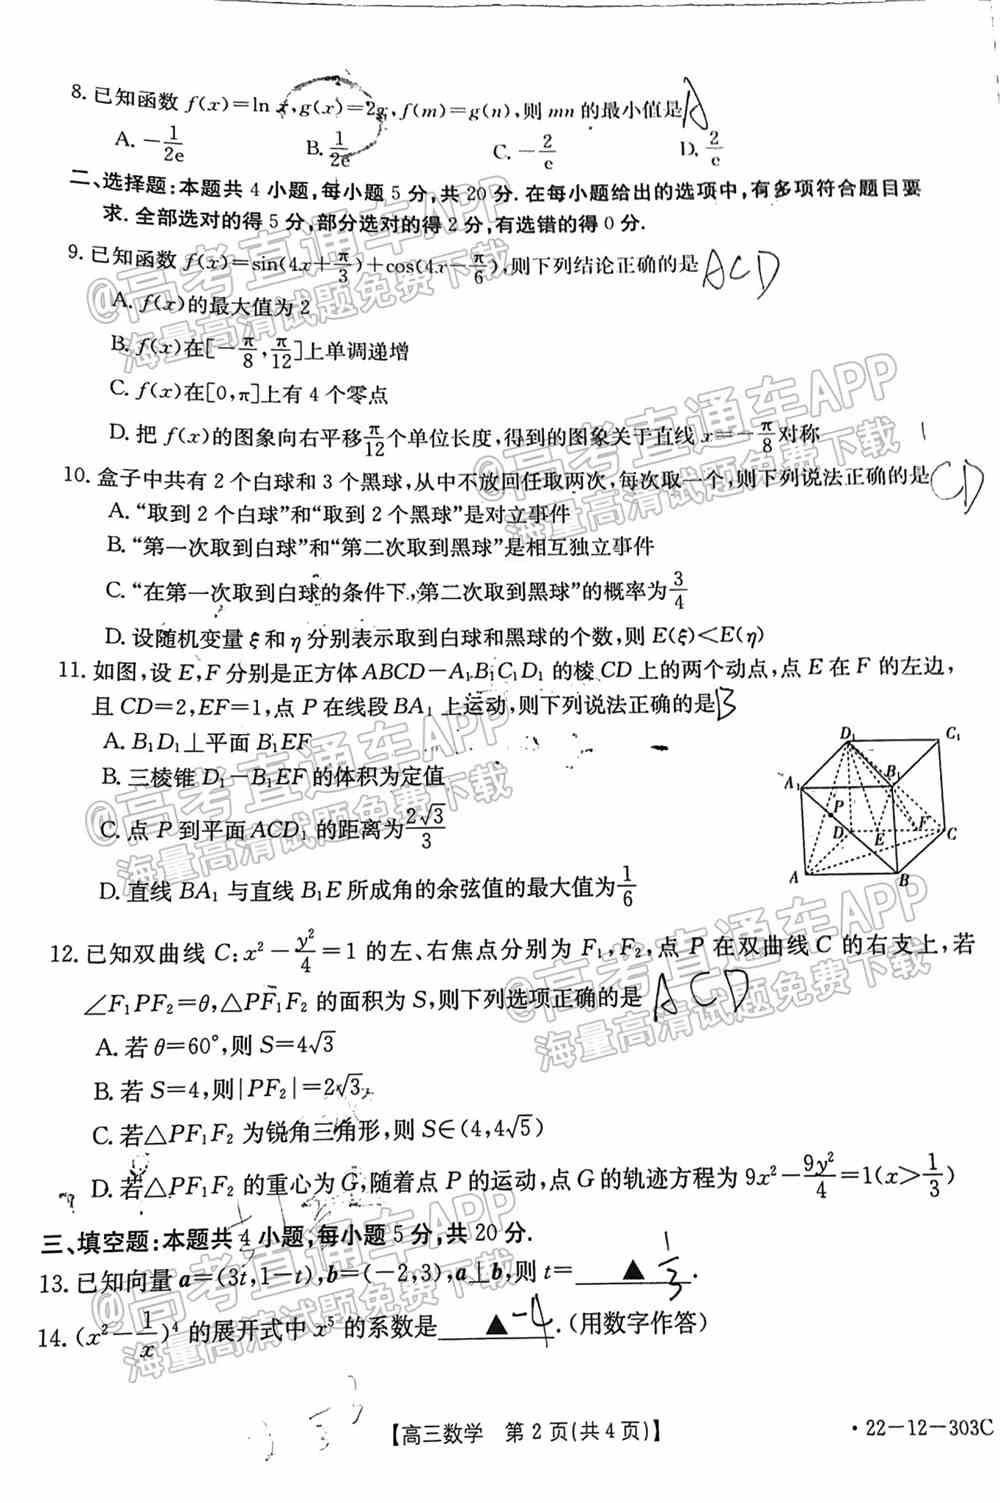 8. 已知函数 f(x)=ln x,g(x)=2x,f(m)=g(n),则 mn 的最小值是 A
A. -1/2e B. 1/2e C. -2/e D. 2/e
二、选择题:本题共 4 小题,每小题 5 分,共 20 分. 在每小题给出的选项中,有多项符合题目要
求. 全部选对的得 5 分,部分选对的得 2 分,有选错的得 0 分.
9. 已知函数 f(x)=sin(4x+π/3)+cos(4x-π/6),则下列结论正确的是 ACD
A. f(x)的最大值为 2
B. f(x)在[-π/8,π/12]上单调递增
C. f(x)在[0,π]上有 4 个零点
D. 把 f(x)的图象向右平移π/12个单位长度,得到的图象关于直线 x=-π/8对称
10. 盒子中共有 2 个白球和 3 个黑球,从中不放回任取两次,每次取一个,则下列说法正确的是 CD
A. “取到 2 个白球”和“取到 2 个黑球”是对立事件
B. “第一次取到白球”和“第二次取到黑球”是相互独立事件
C. “在第一次取到白球的条件下,第二次取到黑球”的概率为3/4
D. 设随机变量 ξ 和 η 分别表示取到白球和黑球的个数,则 E(ξ)<E(η)
11. 如图,设 E,F 分别是正方体 ABCD-A₁B₁C₁D₁ 的棱 CD 上的两个动点,点 E 在 F 的左边,
且 CD=2,EF=1,点 P 在线段 BA₁ 上运动,则下列说法正确的是 B
A. B₁D₁⊥平面 B₁EF
B. 三棱锥 D₁-B₁EF 的体积为定值
C. 点 P 到平面 ACD₁ 的距离为2√3/3
D. 直线 BA₁ 与直线 B₁E 所成角的余弦值的最大值为1/6
D₁ C₁
A₁ B₁
P
D E F C
A B
12. 已知双曲线 C:x²-y²/4=1 的左、右焦点分别为 F₁,F₂,点 P 在双曲线 C 的右支上,若
∠F₁PF₂=θ,△PF₁F₂ 的面积为 S,则下列选项正确的是 ACD
A. 若 θ=60°,则 S=4√3
B. 若 S=4,则|PF₂|=2√3
C. 若△PF₁F₂ 为锐角三角形,则 S∈(4,4√5)
D. 若△PF₁F₂ 的重心为 G,随着点 P 的运动,点 G 的轨迹方程为 9x²-9y²/4=1(x>1/3)
三、填空题:本题共 4 小题,每小题 5 分,共 20 分.
13. 已知向量 a=(3t,1-t),b=(-2,3),a⊥b,则 t= ▲ 1/3.
14. (x²-1/x)⁴ 的展开式中 x⁵ 的系数是 ▲ -4.(用数字作答)
【高三数学 第 2 页(共 4 页)】
·22-12-303C
@高考直通车APP
海量高清试题免费下载
@高考直通车APP
海量高清试题免费下载
@高考直通车APP
海量高清试题免费下载
@高考直通车APP
海量高清试题免费下载
@高考直通车APP
海量高清试题免费下载